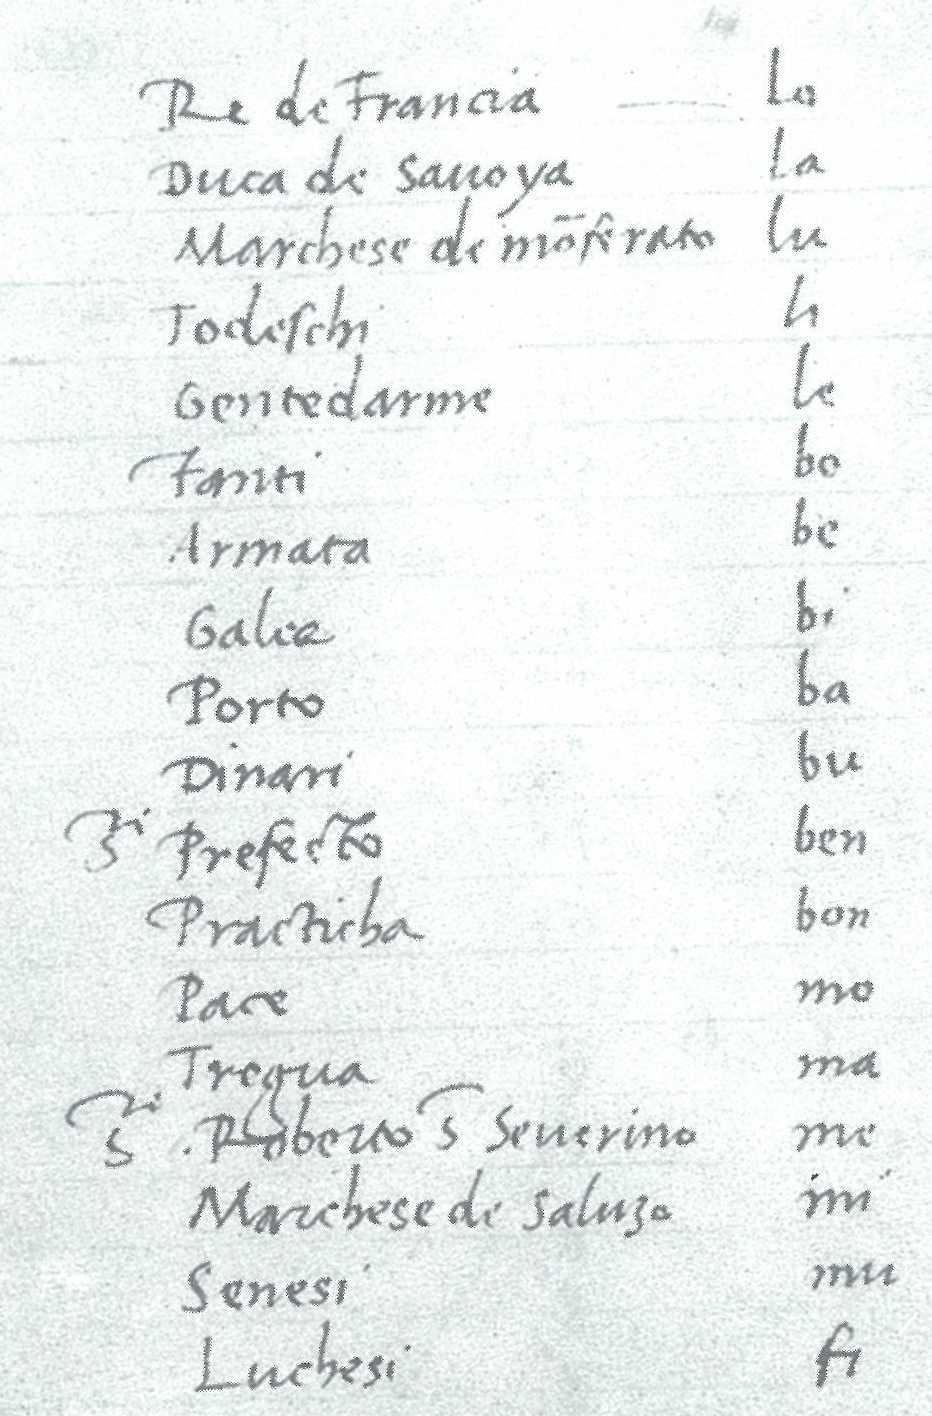 Re de Francia — Lo
Duca de Sauoya La
Marchese de mōferato lu
Todeschi li
Gentedarme le
Fanti bo
Armata be
Galee bi
Porto ba
Dinari bu
Prefecto ben
Practicha bon
Pace mo
Tregua ma
Roberto S Seuerino me
Marchese de Saluzo mi
Senesi mu
Luchesi fi